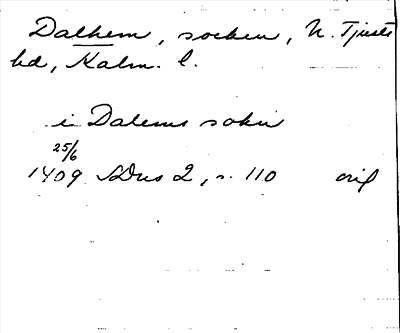 Dalhem, socken, N. Tjusts
hd, Kalm. l.
i Dalems sokn
25/6
1409 SDns 2, s. 110 orig